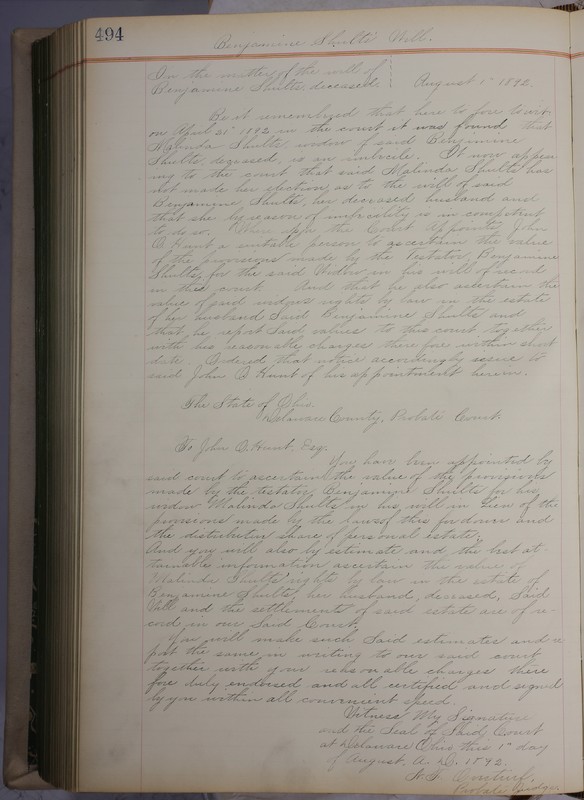 494
Benjamine Shults Will.
In the matter of the will of
Benjamine Shults, deceased.
August 1st 1892.
Be it remembered that here to fore towit:
on April 21st 1892 in the court it was found that
Malinda Shults widow of said Benjamine
Shults, deceased, is an imbecile. It now appear
ing to the court that said Malinda Shults has
not made her election as to the will of said
Benjamine Shults, her deceased husband and
that she by reason of imbecility is in competent
to do so. Where upon the Court appoints John
O. Hunt a suitable person to ascertain the value
of the provisions made by the Testator, Benjamine
Shults, for the said Widow in his will of record
in this court. And that he also ascertain the
value of said widows rights by law in the estate
of her husband Said Benjamine Shults and
that he report said values to this court together
with his reasonable charges there fore within short
date. Ordered that notice accordingly issue to
said John O. Hunt of his appointment herein.
The State of Ohio.
Delaware County, Probate Court.
To John O. Hunt, Esq.
You have been appointed by
said court to ascertain the value of the provisions
made by the testator, Benjamin Shults for his
widow Malinda Shults in his will in Lieu of the
provisions made by the laws of this for dower and
the distributive share of personal estate.
And you will also by estimate and the best at
tainable information ascertain the value of
Malinda Shults rights by law in the estate of
Benjamine Shults, her husband, deceased, Said
Will and the settlements of said estate are of re-
cord in our Said Court.
You will make such Said estimates and re
port the same in writing to our said court
together with your reasonable charges there
fore duly endorsed and all certified and signed
by you within all convenient speed.
Witness My Signature
and the Seal of Said Court
at Delaware Ohio this 1st day
of August, A. D. 1892.
Probate Judge.